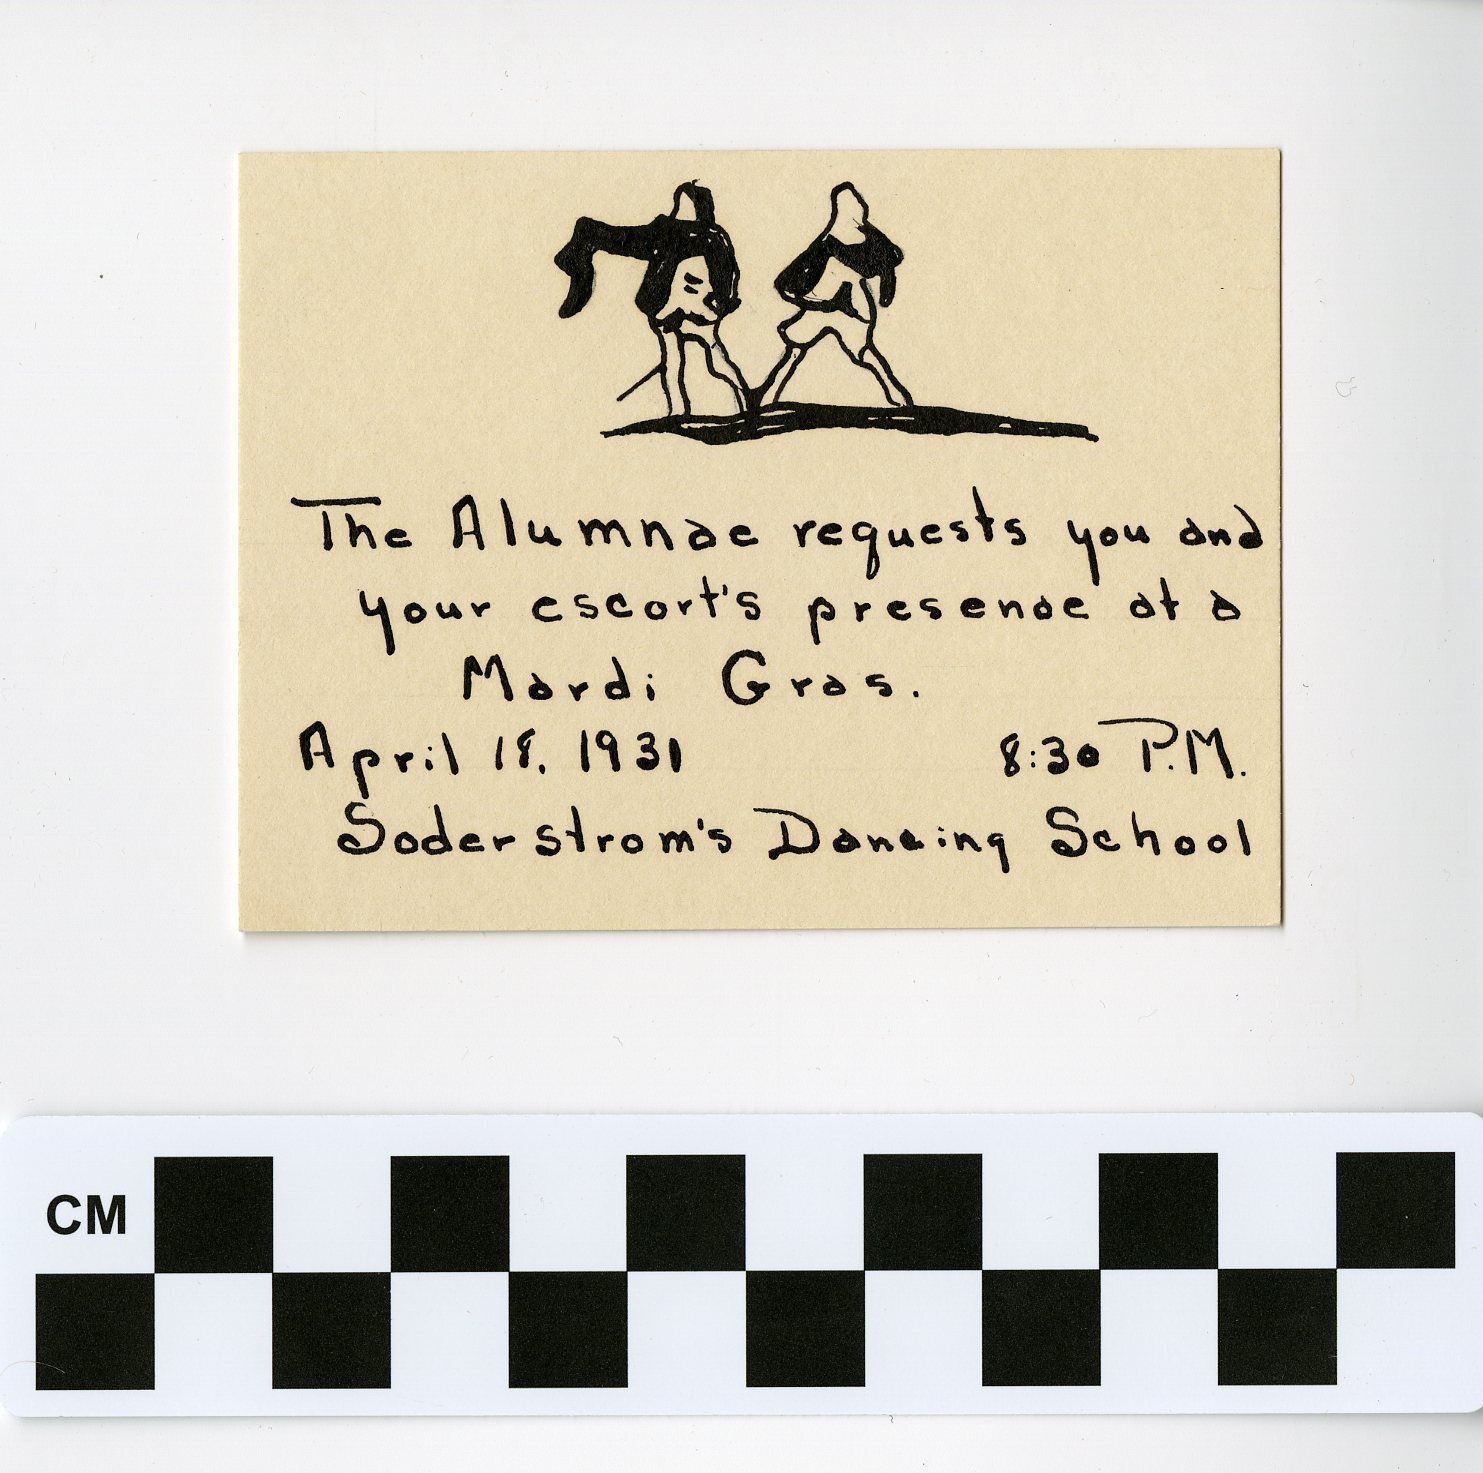 The Alumnae requests you and
your escort's presence at a
Mardi Gras.
April 18, 1931 8:30 P.M.
Soderstrom's Dancing School
CM